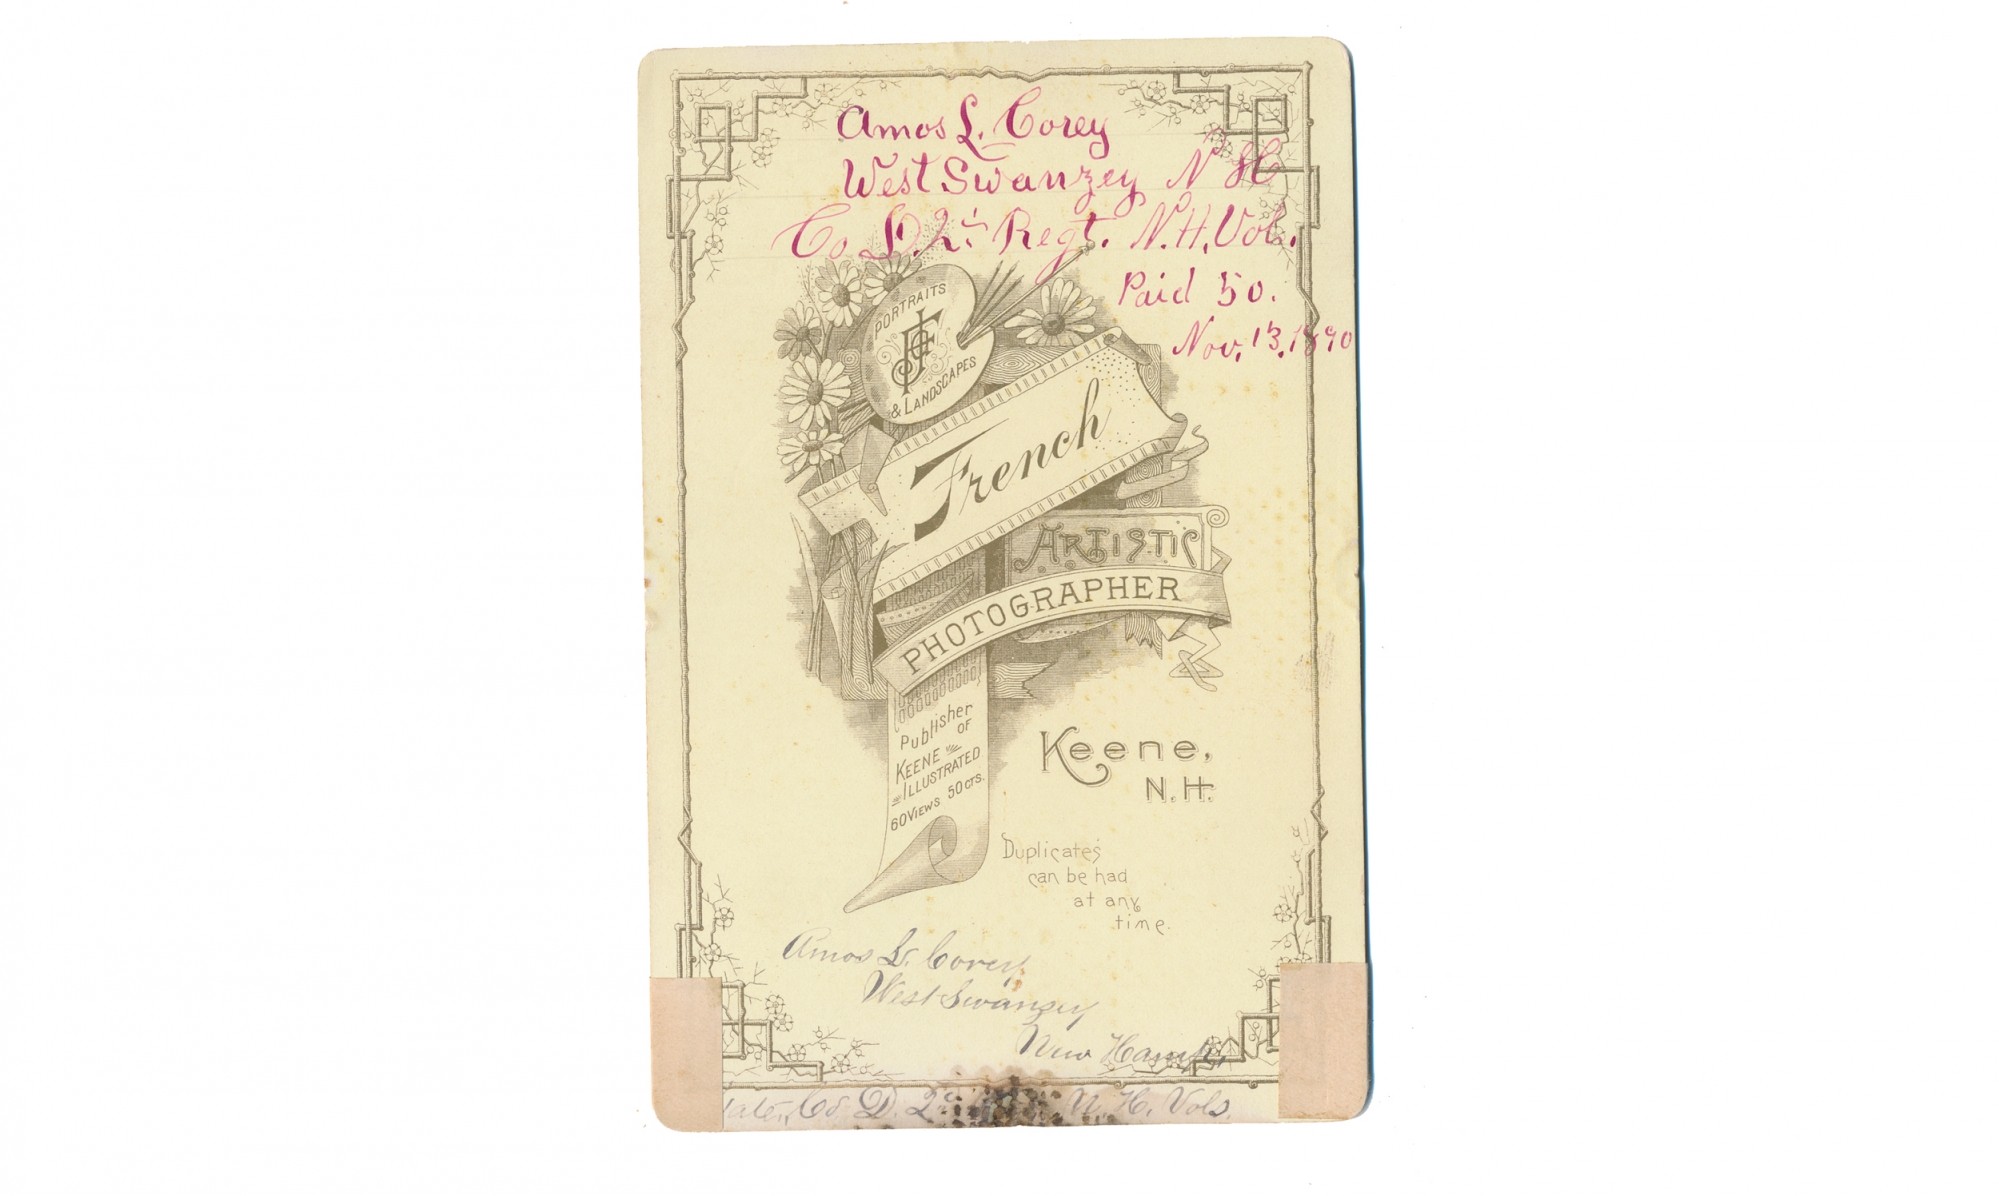 Amos L. Corey
West Swanzey N H
Co D. 2d Regt. N.H. Vol.
Paid 50.
Nov. 13, 1890
PORTRAITS
JF
& LANDSCAPES
French
ARTISTIC
PHOTOGRAPHER
Publisher
OF
KEENE
ILLUSTRATED
60 VIEWS 50 CTS.
Keene,
N.H.
Duplicates
can be had
at any
time.
Amos L. Corey
West Swanzey
New Hamp.
late, Co D. 2d N. H. Vols.